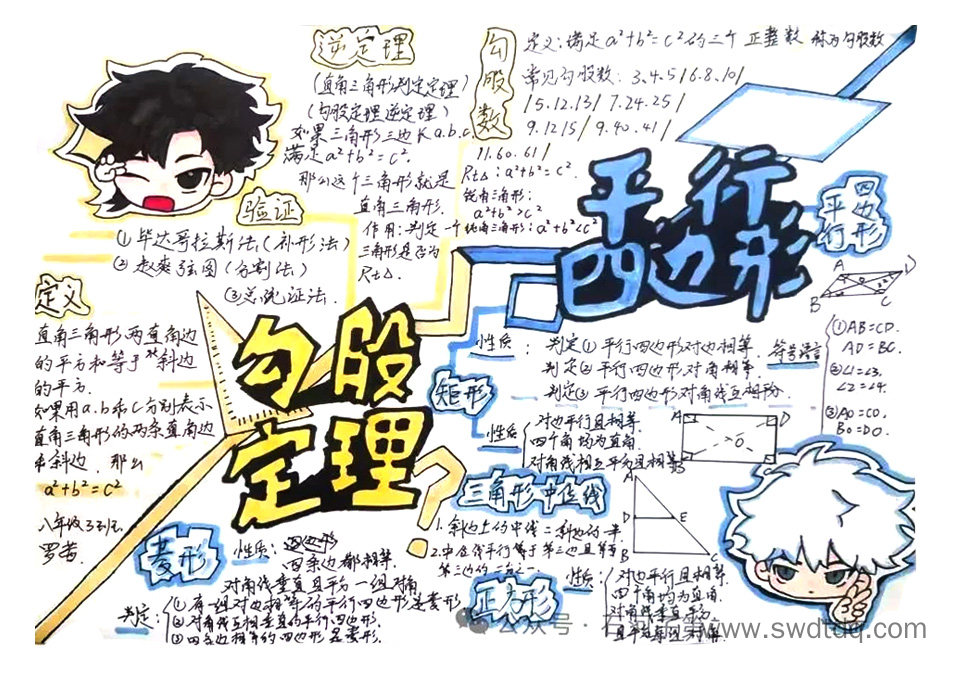 逆定理
(直角三角形判定定理)
(勾股定理逆定理)
如果三角形三边长a.b.c.
满足a²+b²=c².
那么这个三角形就是
直角三角形.
作用:判定一个
三角形是否为
Rt△.
勾股数
定义:满足a²+b²=c²的三个正整数 称为勾股数
常见勾股数:3.4.5/6.8.10/
/5.12.13/7.24.25/
9.12.15/9.40.41/
11.60.61/
Rt△:a²+b²=c².
锐角三角形:
a²+b²>c²
钝角三角形:a²+b²<c²
验证
①毕达哥拉斯法(补形法)
②赵爽弦图(分割法)
③总统证法.
定义
直角三角形两直角边
的平方和等于斜边
的平方.
如果用a.b和c分别表示
直角三角形的两条直角边
和斜边.那么
a²+b²=c²
八年级33班.
勾股
定理
平行
四边形
平行
四边形
A
D
B
C
性质:
判定①平行四边形对边相等.
判定②平行四边形对角相等.
判定③平行四边形对角线互相平分.
符号语言
①AB=CD.
AD=BC.
②∠1=∠3.
∠2=∠4.
③AO=CO.
BO=DO.
矩形
性质
对边平行且相等.
四个角均为直角.
对角线相互平分且相等
A
D
O
B
三角形中位线
1.斜边上的中线=斜边的一半
2.中位线平行于第三边且等于
第三边的二分之一.
A
D
E
B
C
菱形
性质:
四条边都相等.
对角线垂直且平分一组对角
判定:
①有一组对边相等的平行四边形是菱形.
②对角线互相垂直的平行四边形.
③四条边相等的四边形是菱形.
正方形
性质:
对边平行且相等.
四个角均为直角.
对角线垂直平分
公众号·石
www.swdtdq.com